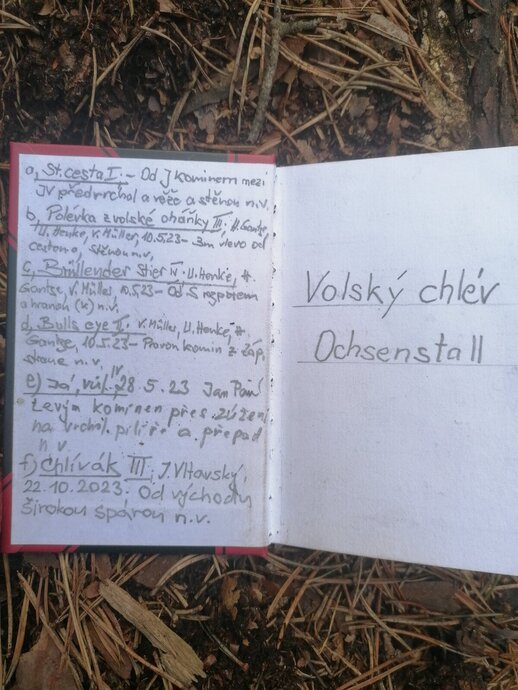 a, St. cesta I. – Od J kominem mezi
JV předvrchol a věžo a stěnou n.v.
b, Polévka z volské oháňky III. H. Gantze,
U. Henke, V. Müller, 10.5.23 – 3m vlevo od
cesta a, stěnou n.v.
c, Brüllender Stier IV. U. Henke, H.
Gantze, V. Müller 10.5.23 – Od S rozporem
a hranou (k) n.v.
d, Bulls eye II. V. Müller, U. Henke, H.
Gantze, 10.5.23 – Pravou komin z záp.
n.v.
e) Já, vůl IV 28.5.23 Jan
Levým komínem přes zúžení
na vrchol pilíře a přepad
n v.
f) Chlívák III, J. Vltavský,
22.10.2023. Od východu
širokou spárou n.v.
Volský chlév
Ochsenstall